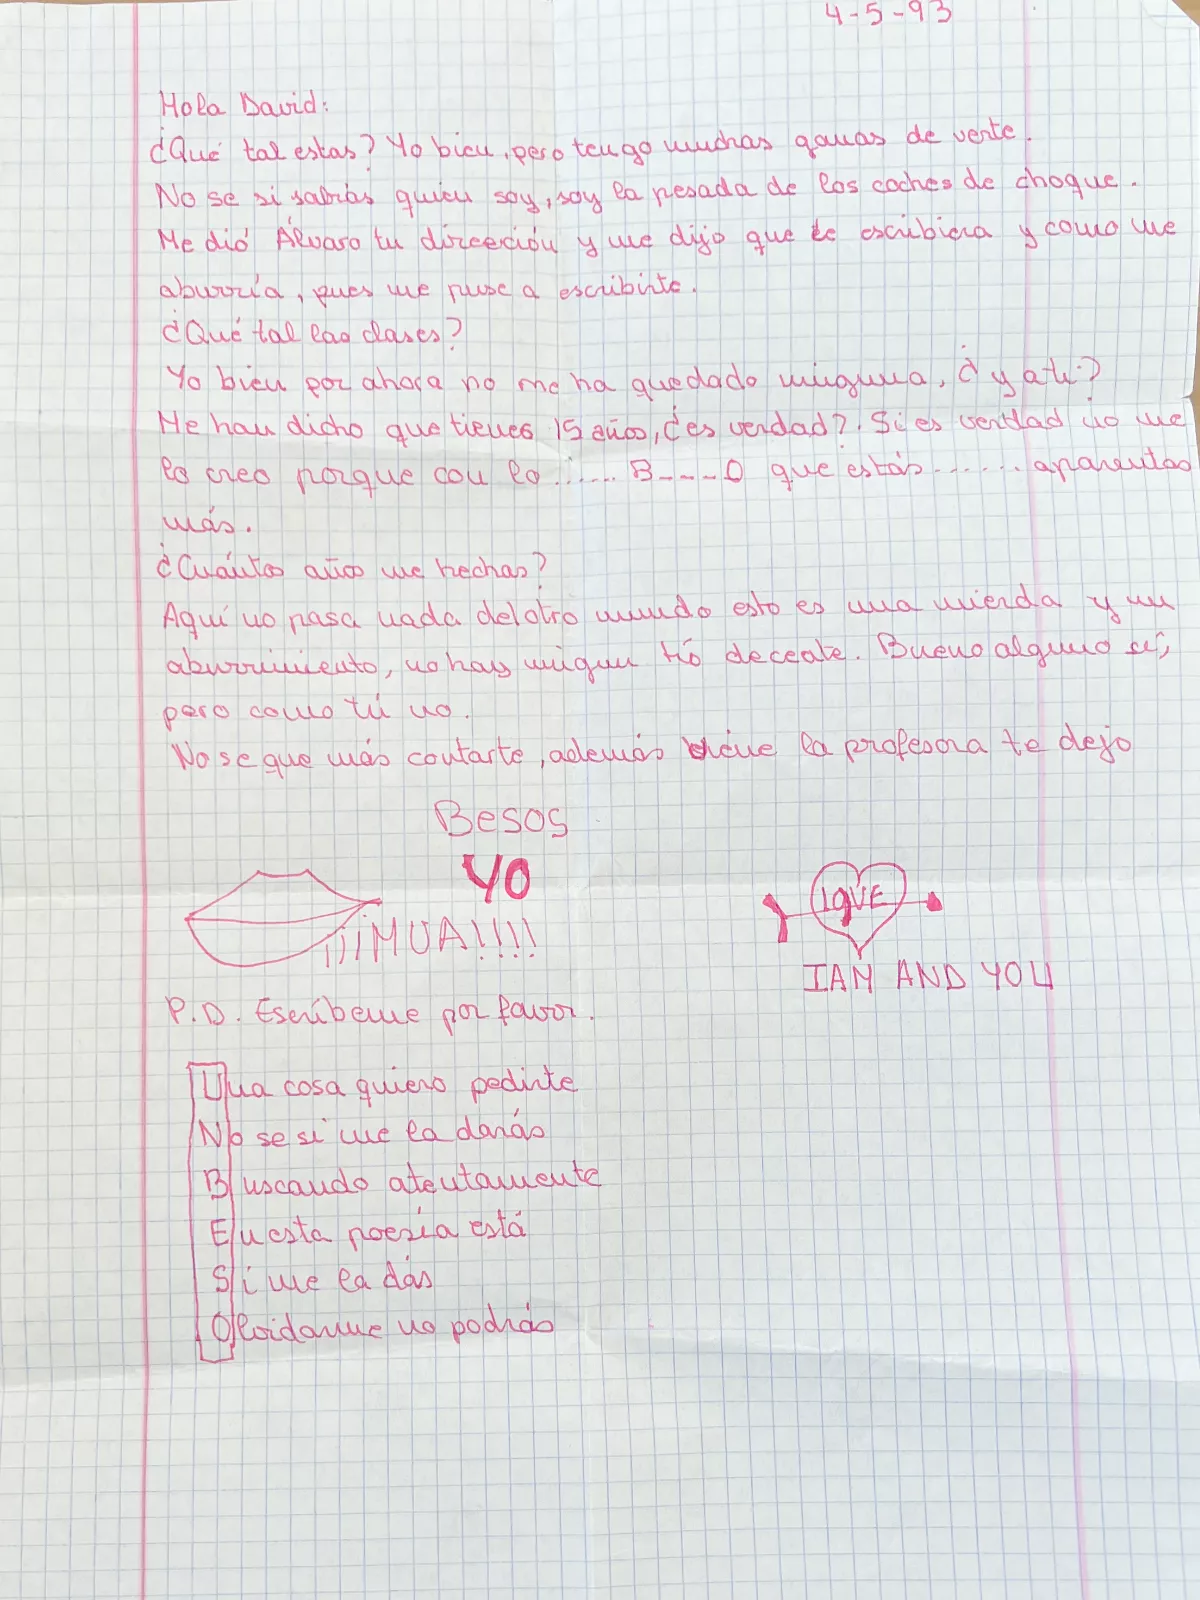 4-5-93
Hola David:
¿Qué tal estas? Yo bien, pero tengo muchas ganas de verte.
No se si sabrás quien soy, soy la pesada de los coches de choque.
Me dió Álvaro tu dirección y me dijo que te escribiera y como me
aburría, pues me puse a escribirte.
¿Qué tal las clases?
Yo bien por ahora no me ha quedado ninguna, ¿y a ti?
Me han dicho que tienes 15 años, ¿es verdad?. Si es verdad no me
lo creo porque con lo ...... B----O que estás ...... aparentas
más.
¿Cuántos años me hechas?
Aquí no pasa nada del otro mundo esto es una mierda y un
aburrimiento, no hay ningun tío deceate. Bueno alguno sí,
pero como tú no.
No se que más contarte, además viene la profesora te dejo
Besos
YO
¡¡¡MUA!!!!
lQVE
I AM AND YOU
P.D. Escríbeme por favor.
Una cosa quiero pedirte
No se si me la darás
Buscando atentamente
En esta poesía está
Si me la dás
Olvidarme no podrás